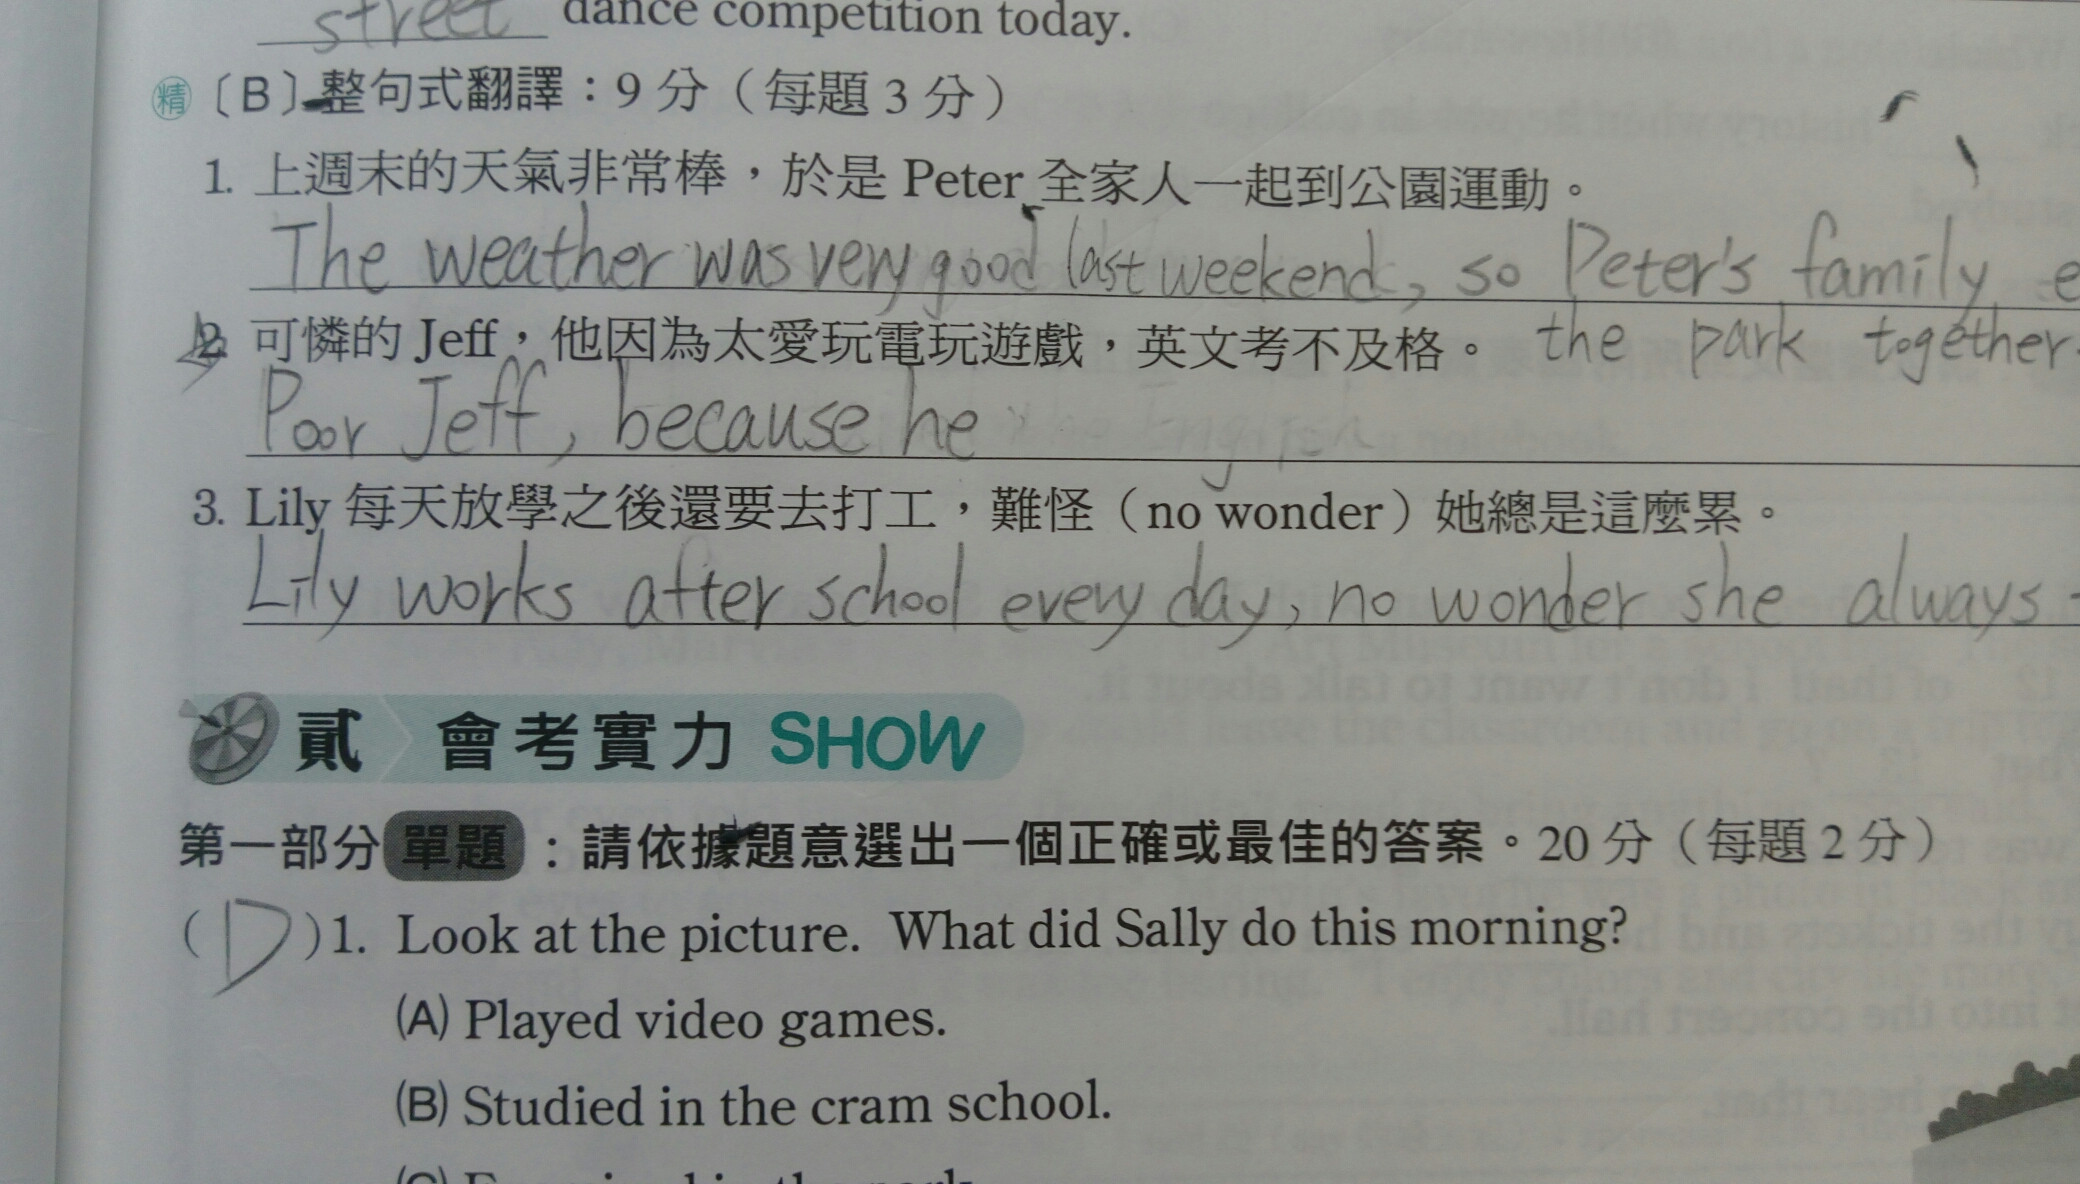 street dance competition today.
精 〔B〕整句式翻譯：9 分（每題 3 分）
1. 上週末的天氣非常棒，於是 Peter 全家人一起到公園運動。
The weather was very good last weekend, so Peter's family e
the park together.
2. 可憐的 Jeff，他因為太愛玩電玩遊戲，英文考不及格。
Poor Jeff, because he
3. Lily 每天放學之後還要去打工，難怪（no wonder）她總是這麼累。
Lily works after school every day, no wonder she always
貳 會考實力 SHOW
第一部分 單題：請依據題意選出一個正確或最佳的答案。20 分（每題 2 分）
( D )1. Look at the picture. What did Sally do this morning?
(A) Played video games.
(B) Studied in the cram school.